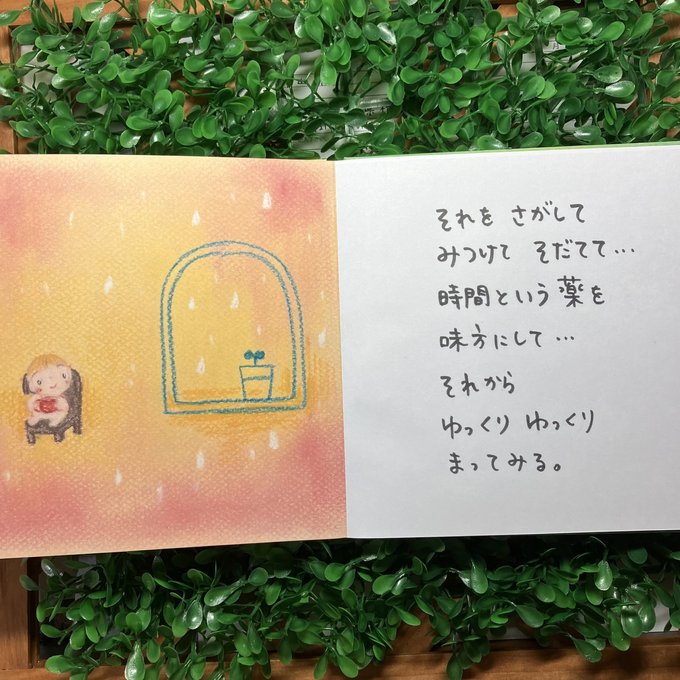 それを さがして
みつけて そだてて…
時間という薬を
味方にして…
それから
ゆっくり ゆっくり
まってみる。